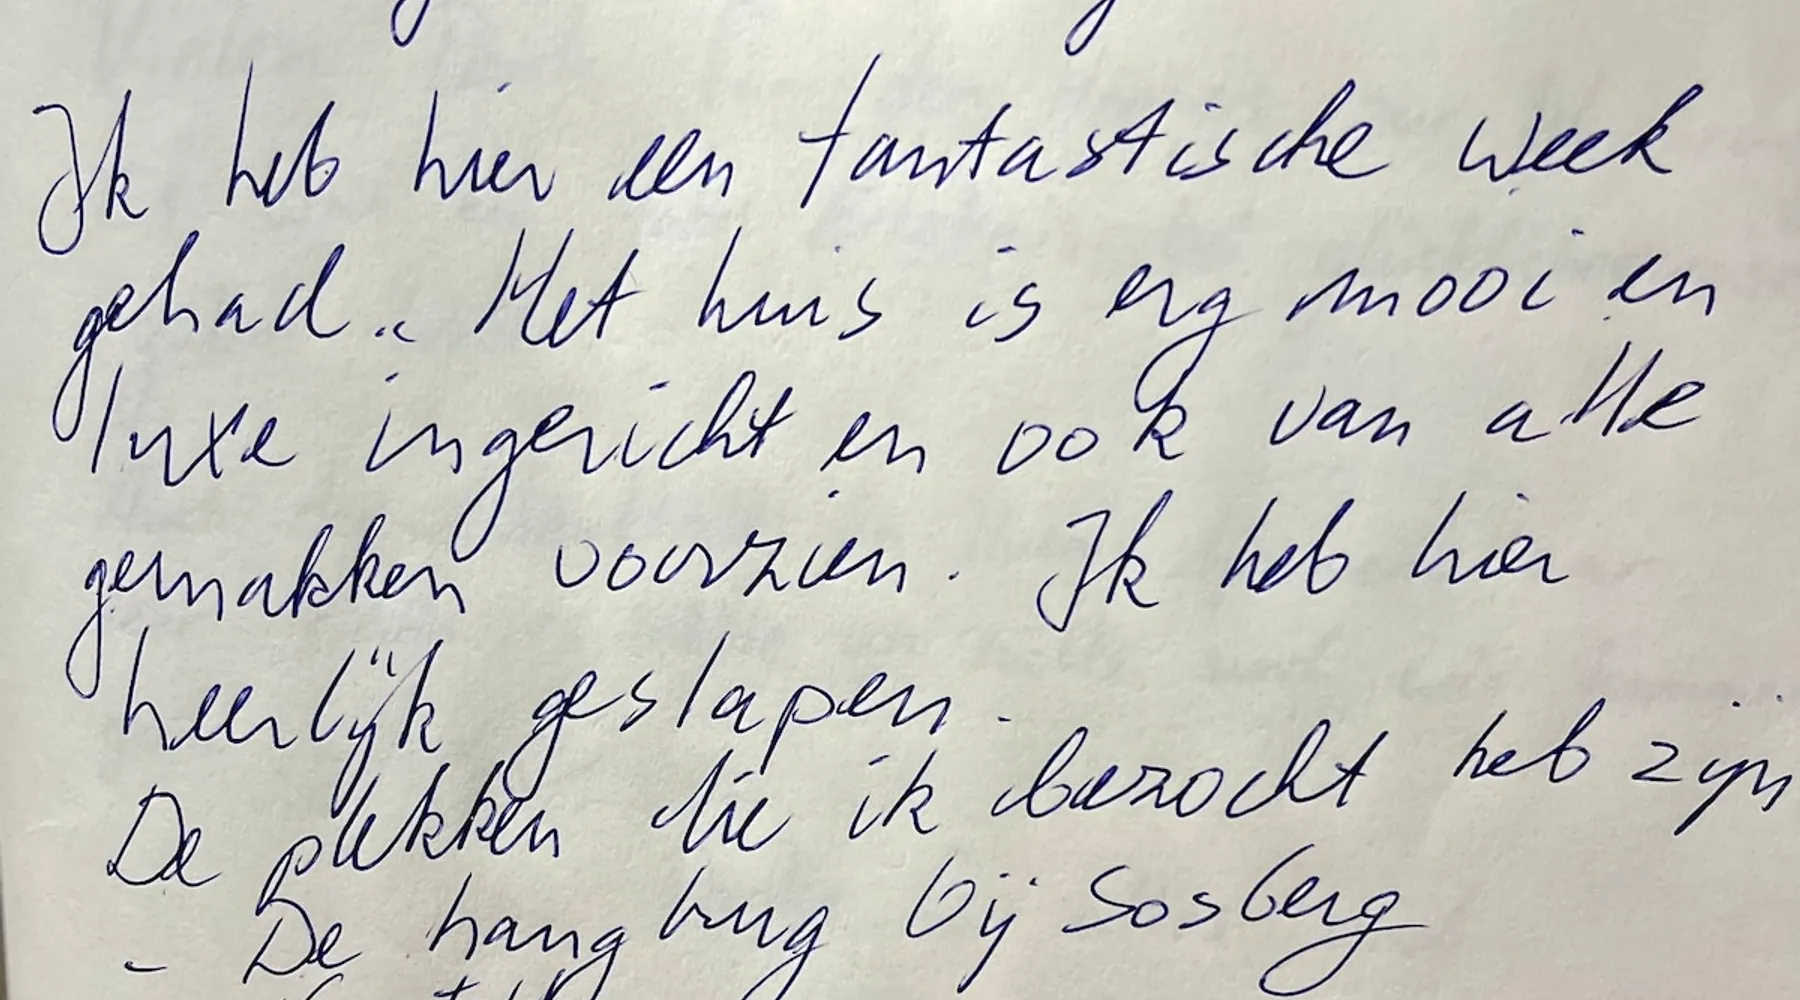 Ik heb hier een fantastische week
gehad. Het huis is erg mooi en
luxe ingericht en ook van alle
gemakken voorzien. Ik heb hier
heerlijk geslapen.
De plekken die ik bezocht heb zijn
- De hangbrug bij Sosberg